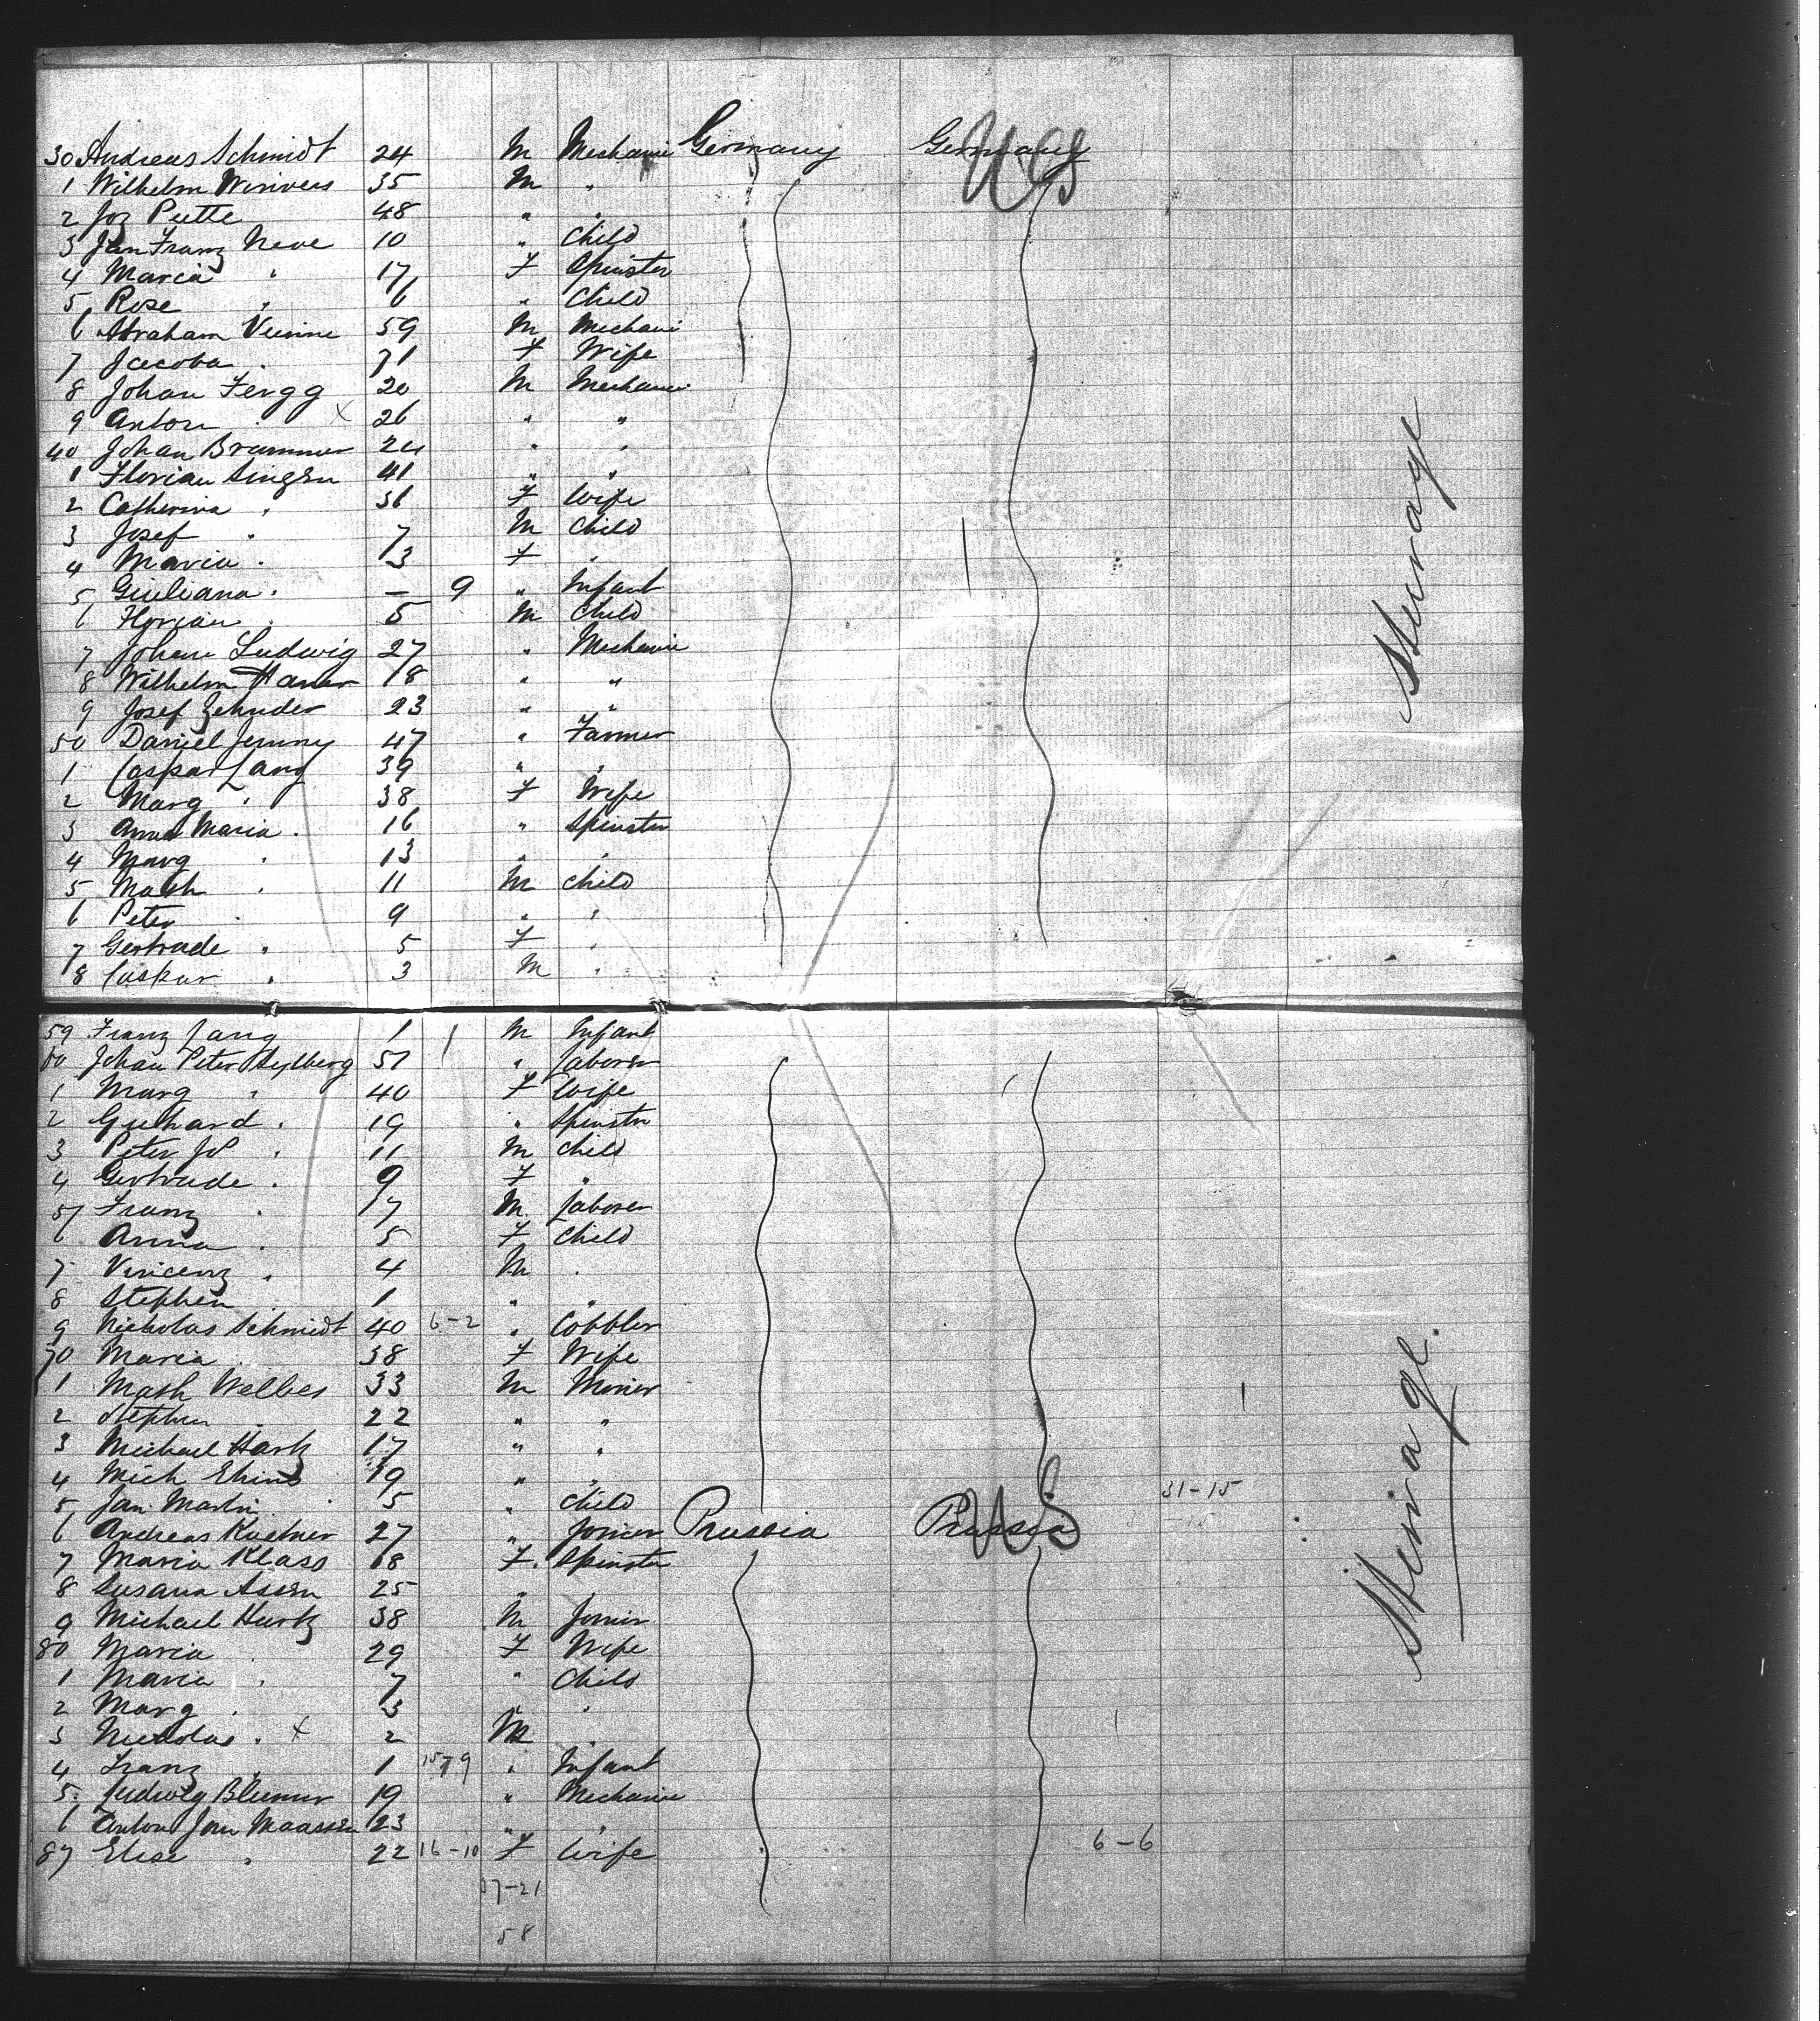 30 Andreas Schmidt 24 M Mechanic Germany Germany US
1 Wilhelm 35 M "
2 Jos Putte 48 " "
3 Jan Franz Neve 10 " Child
4 Maria " 17 F Spinster
5 Rose " 6 " Child
6 Abraham 59 M Mechani
7 Jacoba " 71 F Wife
8 Johan Fergg 20 M Mechanic
9 Anton " x 26 " "
40 Johan Brammer 24 " "
1 Florian Singen 41 " "
2 Catherina " 36 F Wife
3 Josef " 7 M Child
4 Maria " 3 F "
5 Giuleana " – 9 " Infant
6 Florian " 5 M Child
7 Johan Ludwig 27 " Mechanic
8 Wilhelm 18 " "
9 Josef Zehnder 23 " "
50 Daniel Jenny 47 " Farmer
1 Caspar Lang 39 " "
2 Marg " 38 F Wife
3 Anna Maria " 16 " Spinster
4 Marg " 13 " "
5 Math " 11 M Child
6 Peter " 9 " "
7 Gertrude " 5 F "
8 Caspar " 3 M "
Steerage
59 Franz Lang 1 M Infant
60 Johan Peter 51 " Laborer
1 Marg " 40 F Wife
2 " 19 " Spinster
3 Peter " 11 M Child
4 Gertrude " 9 F "
5 Franz " 17 M Laborer
6 Anna " 5 F Child
7 Vincenz " 4 M "
8 Stephen " 1 " "
9 Nicholas Schmidt 40 6-2 " Cobbler
70 Maria " 38 F Wife
1 Math Welbes 33 M Minier
2 Stephen " 22 " "
3 Michael Hartz 17 " "
4 Mich 19 " "
31-15
5 Jan Martin 5 " Child
6 Andreas Kuetner 27 " Joiner Prussia Prussia US
7 Maria Klass 18 F Spinster
8 Susana Assen 25 " "
9 Michael Hartz 38 M Joiner
80 Maria " 29 F Wife
1 Maria " 7 " Child
2 Marg " 3 " "
3 Nicholas " x 2 M "
4 Franz " 1 15-9 " Infant
5 Ludwig Blumer 19 " Mechanic
6 Anton Jan Maassen 23 " "
87 Elise " 22 16-10 F Wife 6-6
37-21
58
Steerage